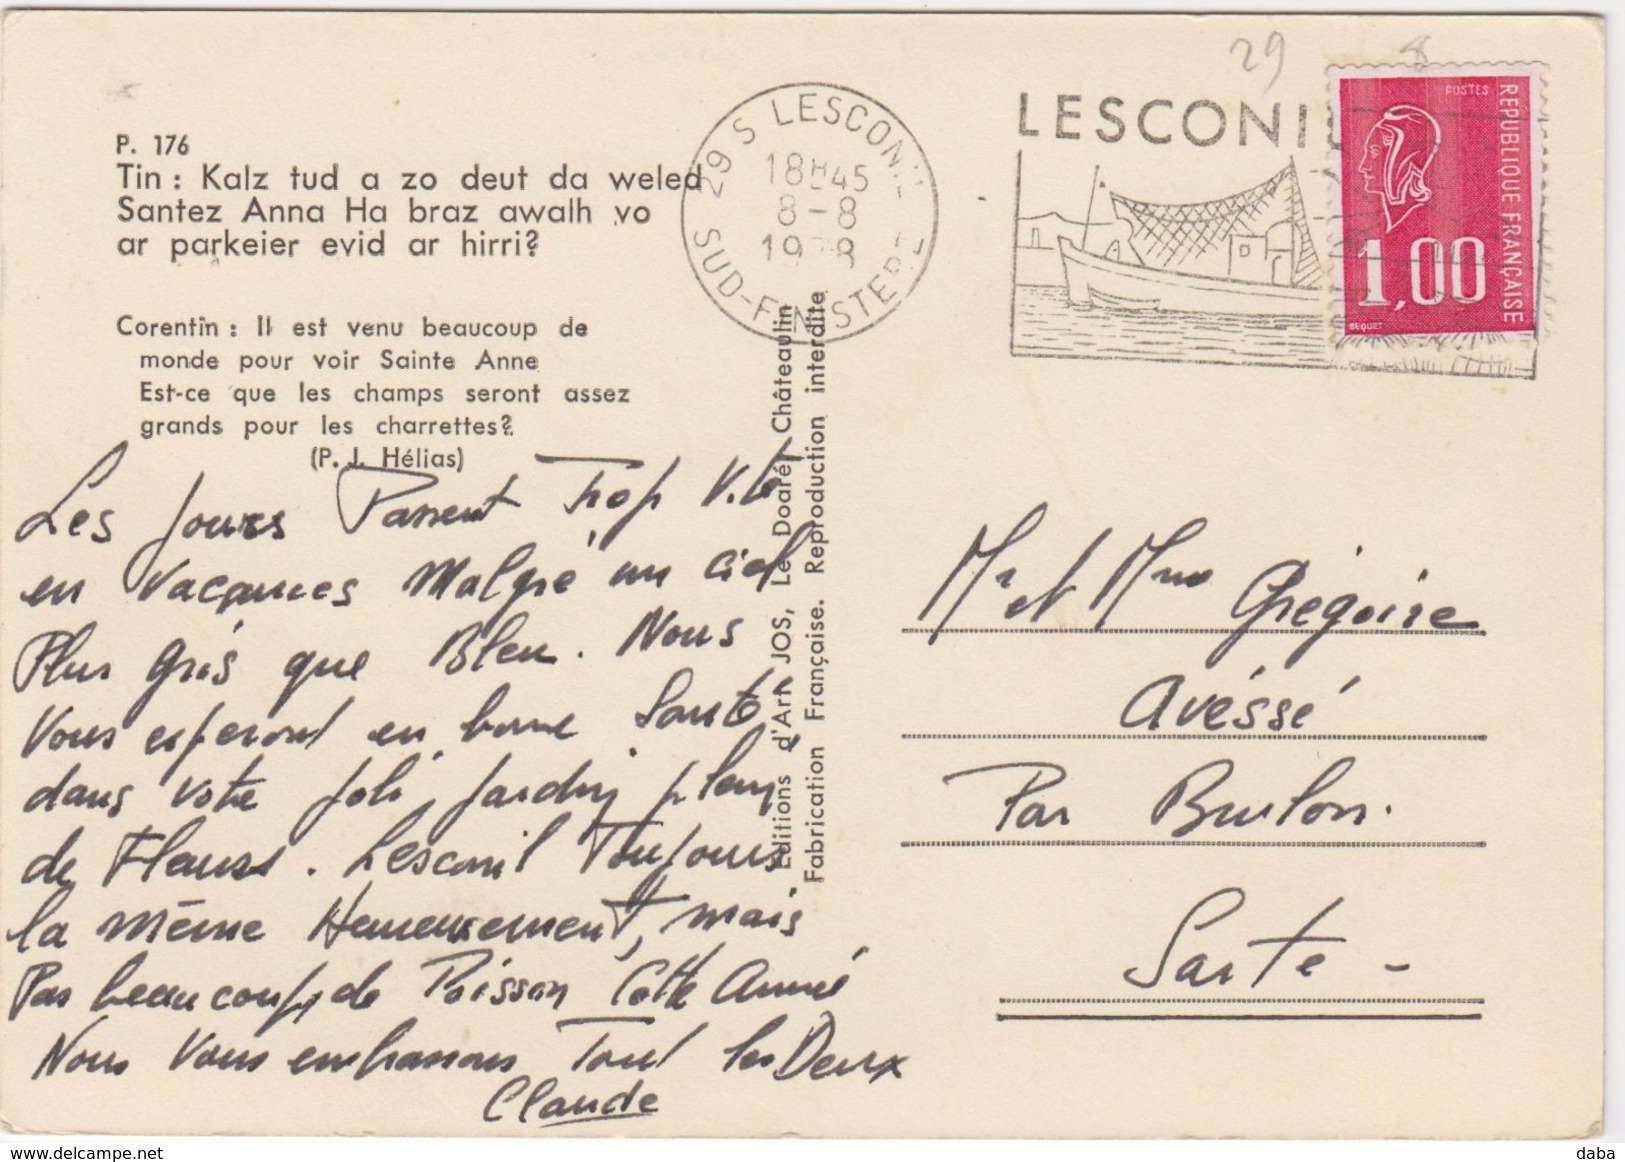 29 8
P. 176
Tin : Kalz tud a zo deut da weled
Santez Anna Ha braz awalh vo
ar parkeier evid ar hirri?
Corentin : Il est venu beaucoup de
monde pour voir Sainte Anne
Est-ce que les champs seront assez
grands pour les charrettes?
(P. J. Hélias)
29 S LESCONIL
18H45
8-8
1978
SUD-FINISTERE
LESCONI
POSTES
REPUBLIQUE FRANÇAISE
1,00
BEQUET
Editions d'Art JOS, Le Doaré, Châteaulin
Fabrication Française. Reproduction interdite
Les Jours Passent Trop Vite
en Vacances Malgré un Ciel
Plus Gris que Bleu. Nous
Vous esperont en bonne Santé,
dans Votre Joli Jardin plein
de Fleurs. Lesconil Toujours
la même Heureusement, mais
Pas beaucoup de Poisson Cette Année
Nous Vous embrassons Tout les Deux
Claude
Mr et Mme Grégoire
Avéssé
Par Brulon.
Sarte -
delcampe.net
daba